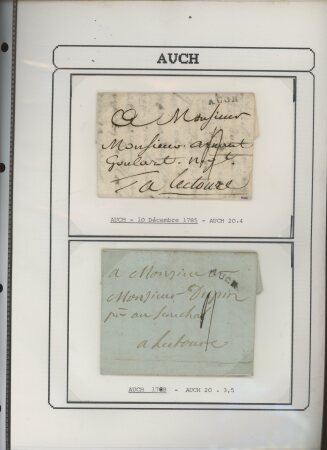 AUCH
AUCH
A Monsieur
Monsieur
a Lectoure
AUCH - 10 Décembre 1785 - AUCH 20.4
a Monsieur
AUCH
Monsieur
a Lectoure
AUCH - AUCH 20 - 3,5